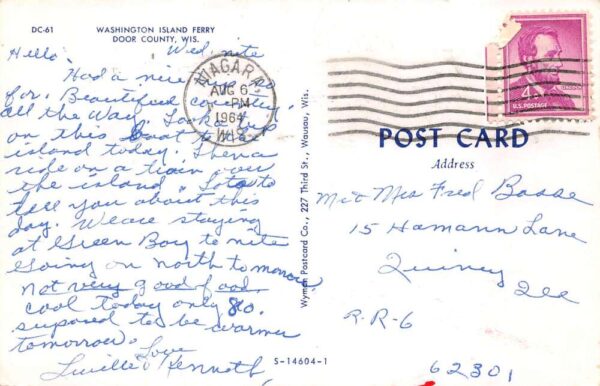 DC-61
WASHINGTON ISLAND FERRY
DOOR COUNTY, WIS.
Hello. Wed. nite
Had a nice so
far. Beautiful country
all the way. Took a trip
on this boat to the
island today. Then a
ride on a train over
the island. Lots to
tell you about this
day. We are staying
at Green Bay to nite
Going on north tomorrow.
not very good food.
cool today only 80.
suposed to be warmer
tomorrow. Love
Lucille & Kenneth
S-14604-1
Wyman Postcard Co., 227 Third St., Wausau, Wis.
NIAGARA
AUG 6
PM
1964
WIS.
4¢
LINCOLN
U.S. POSTAGE
POST CARD
Address
Mr & Mrs Fred Basse
15 Hamann Lane
Quincy
Ill
R.R-6
62301